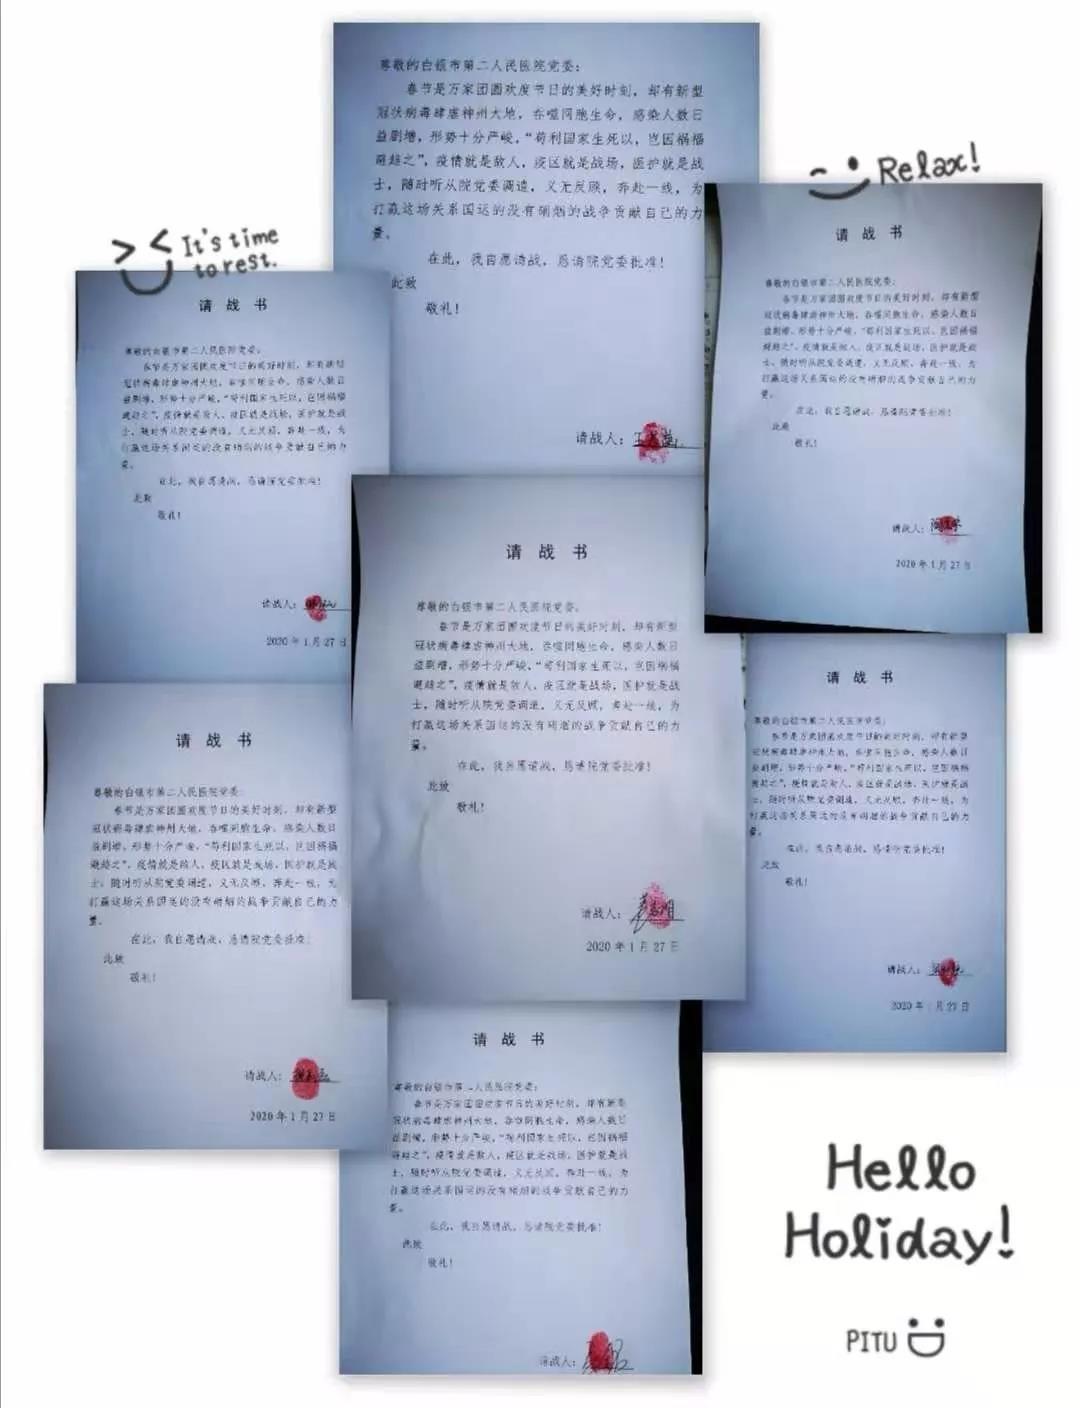 尊敬的白银市第二人民医院党委:
春节是万家团圆欢度节日的美好时刻,却有新型
冠状病毒肆虐神州大地,吞噬同胞生命,感染人数日
益剧增,形势十分严峻,“苟利国家生死以,岂因祸福
避趋之”,疫情就是敌人,疫区就是战场,医护就是战
士,随时听从院党委调遣,义无反顾,奔赴一线,为
打赢这场关系国运的没有硝烟的战争贡献自己的力
量。
在此,我自愿请战,恳请院党委批准!
此致
敬礼!
请战人:
Relax!
请 战 书
尊敬的白银市第二人民医院党委:
春节是万家团圆欢度节日的美好时刻,却有新型
冠状病毒肆虐神州大地,吞噬同胞生命,感染人数日
益剧增,形势十分严峻,“苟利国家生死以,岂因祸福
避趋之”,疫情就是敌人,疫区就是战场,医护就是战
士,随时听从院党委调遣,义无反顾,奔赴一线,为
打赢这场关系国运的没有硝烟的战争贡献自己的力
量。
在此,我自愿请战,恳请院党委批准!
此致
敬礼!
请战人:
2020年1月27日
It's time
to rest.
请 战 书
尊敬的白银市第二人民医院党委:
春节是万家团圆欢度节日的美好时刻,却有新型
冠状病毒肆虐神州大地,吞噬同胞生命,感染人数日
益剧增,形势十分严峻,“苟利国家生死以,岂因祸福
避趋之”,疫情就是敌人,疫区就是战场,医护就是战
士,随时听从院党委调遣,义无反顾,奔赴一线,为
打赢这场关系国运的没有硝烟的战争贡献自己的力
量。
在此,我自愿请战,恳请院党委批准!
此致
敬礼!
请战人:
2020年1月27日
请 战 书
尊敬的白银市第二人民医院党委:
春节是万家团圆欢度节日的美好时刻,却有新型
冠状病毒肆虐神州大地,吞噬同胞生命,感染人数日
益剧增,形势十分严峻,“苟利国家生死以,岂因祸福
避趋之”,疫情就是敌人,疫区就是战场,医护就是战
士,随时听从院党委调遣,义无反顾,奔赴一线,为
打赢这场关系国运的没有硝烟的战争贡献自己的力
量。
在此,我自愿请战,恳请院党委批准!
此致
敬礼!
请战人:
2020年1月27日
请 战 书
尊敬的白银市第二人民医院党委:
春节是万家团圆欢度节日的美好时刻,却有新型
冠状病毒肆虐神州大地,吞噬同胞生命,感染人数日
益剧增,形势十分严峻,“苟利国家生死以,岂因祸福
避趋之”,疫情就是敌人,疫区就是战场,医护就是战
士,随时听从院党委调遣,义无反顾,奔赴一线,为
打赢这场关系国运的没有硝烟的战争贡献自己的力
量。
在此,我自愿请战,恳请院党委批准!
此致
敬礼!
请战人:
2020年1月27日
请 战 书
尊敬的白银市第二人民医院党委:
春节是万家团圆欢度节日的美好时刻,却有新型
冠状病毒肆虐神州大地,吞噬同胞生命,感染人数日
益剧增,形势十分严峻,“苟利国家生死以,岂因祸福
避趋之”,疫情就是敌人,疫区就是战场,医护就是战
士,随时听从院党委调遣,义无反顾,奔赴一线,为
打赢这场关系国运的没有硝烟的战争贡献自己的力
量。
在此,我自愿请战,恳请院党委批准!
此致
敬礼!
请战人:
2020年1月27日
请 战 书
尊敬的白银市第二人民医院党委:
春节是万家团圆欢度节日的美好时刻,却有新型
冠状病毒肆虐神州大地,吞噬同胞生命,感染人数日
益剧增,形势十分严峻,“苟利国家生死以,岂因祸福
避趋之”,疫情就是敌人,疫区就是战场,医护就是战
士,随时听从院党委调遣,义无反顾,奔赴一线,为
打赢这场关系国运的没有硝烟的战争贡献自己的力
量。
在此,我自愿请战,恳请院党委批准!
此致
敬礼!
请战人:
Hello
Holiday!
PITU